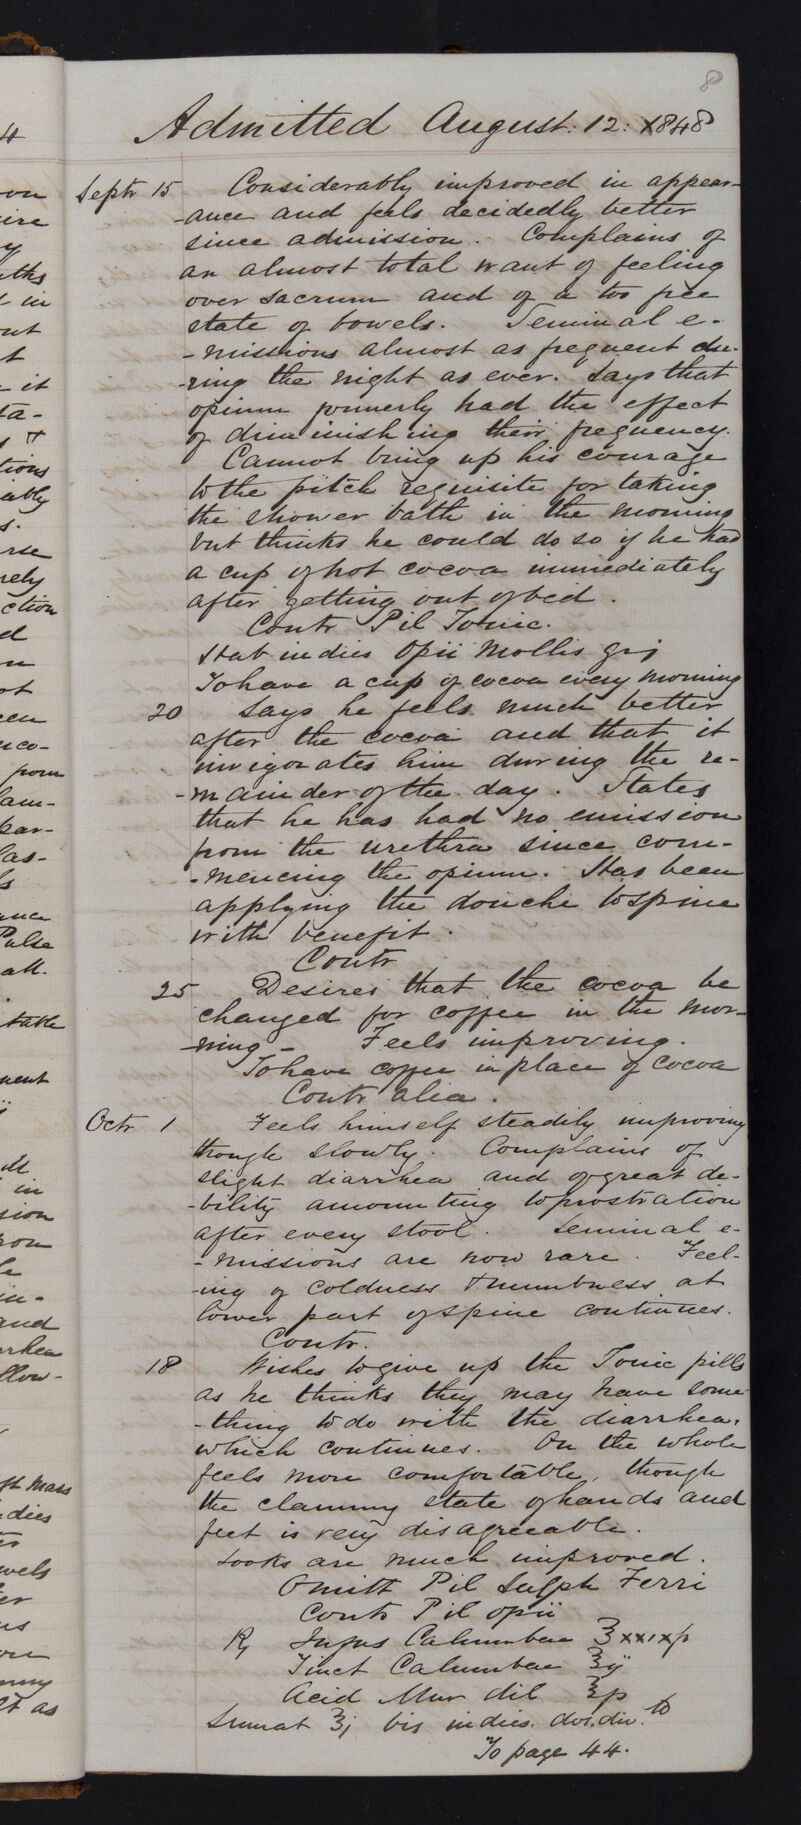 8
Admitted August. 12. 1848
Septr 15 Considerably improved in appear-
-ance and feels decidedly better
since admission. Complains of
an almost total want of feeling
over sacrum and of a too free
state of bowels. Seminal e-
-missions almost as frequent du-
-ring the night as ever. Says that
opium formerly had the effect
of diminishing their frequency.
Cannot bring up his courage
to the pitch requisite for taking
the shower bath in the morning
but thinks he could do so if he had
a cup of hot cocoa immediately
after getting out of bed.
Contr Pil Tonic.
Hab indies Opii Mollis grj
To have a cup of cocoa every morning
20 Says he feels much better
after the cocoa and that it
invigorates him during the re-
-mainder of the day. States
that he has had no emission
from the urethra since com-
-mencing the opium. Has been
applying the douche to spine
with benefit.
Contr
25 Desires that the cocoa be
changed for coffee in the mor-
-ning - Feels improving.
To have coffee in place of cocoa
Contr alia.
Octr 1 Feels himself steadily improving
though slowly. Complains of
slight diarrhea and of great de-
-bility amounting to prostration
after every stool. Seminal e-
-missions are now rare. Feel-
-ing of coldness & numbness at
lower part of spine continues.
Contr.
18 Wishes to give up the Tonic pills
as he thinks they may have some-
-thing to do with the diarrhea,
which continues. On the whole
feels more comfortable, though
the clammy state of hands and
feet is very disagreeable.
Looks are much improved.
Omitt Pil Sulph Ferri
Contr Pil opii
R, Infus Calumbae ℥xxixſs
Tinct Calumbae ℥ij
Acid Mur dil ℥ſs
Sumat ℥j bis indies
To page 44.